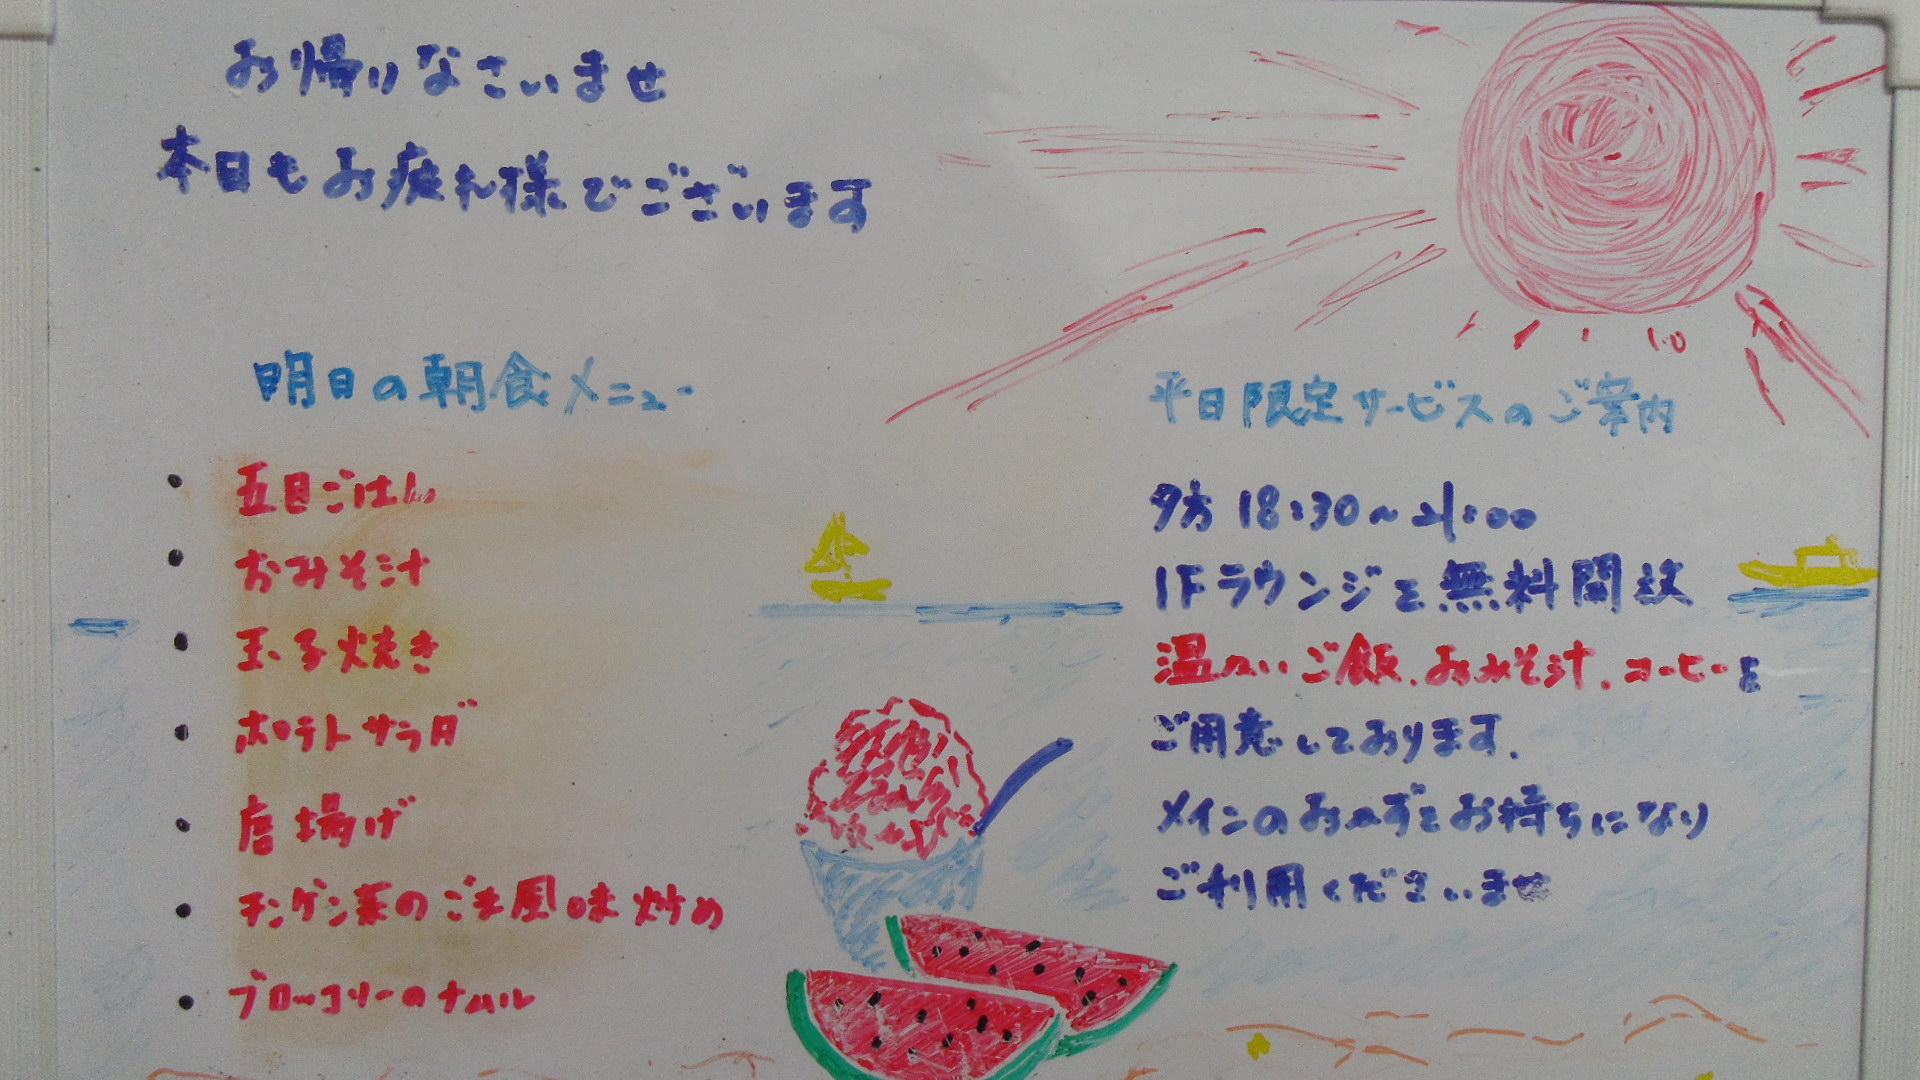 お帰りなさいませ
本日もお疲れ様でございます
明日の朝食メニュー
・五目ごはん
・おみそ汁
・玉子焼き
・ポテトサラダ
・唐揚げ
・チンゲン菜のごま風味炒め
・ブロッコリーのナムル
平日限定サービスのご案内
夕方 18:30〜21:00
1Fラウンジを無料開放
温かいご飯、おみそ汁、コーヒーを
ご用意しております。
メインのおかずをお持ちになり
ご利用くださいませ